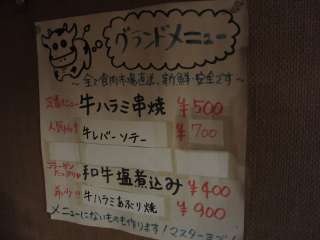 グランドメニュー
～全て食肉市場直送、新鮮・安全です～
定番メニュー 牛ハラミ串焼 ¥500
人気 牛レバーソテー ¥700
コラーゲンたっぷり 和牛塩煮込み ¥400
牛ハラミあぶり焼 ¥900
メニューにないものも作ります！マスターまで！